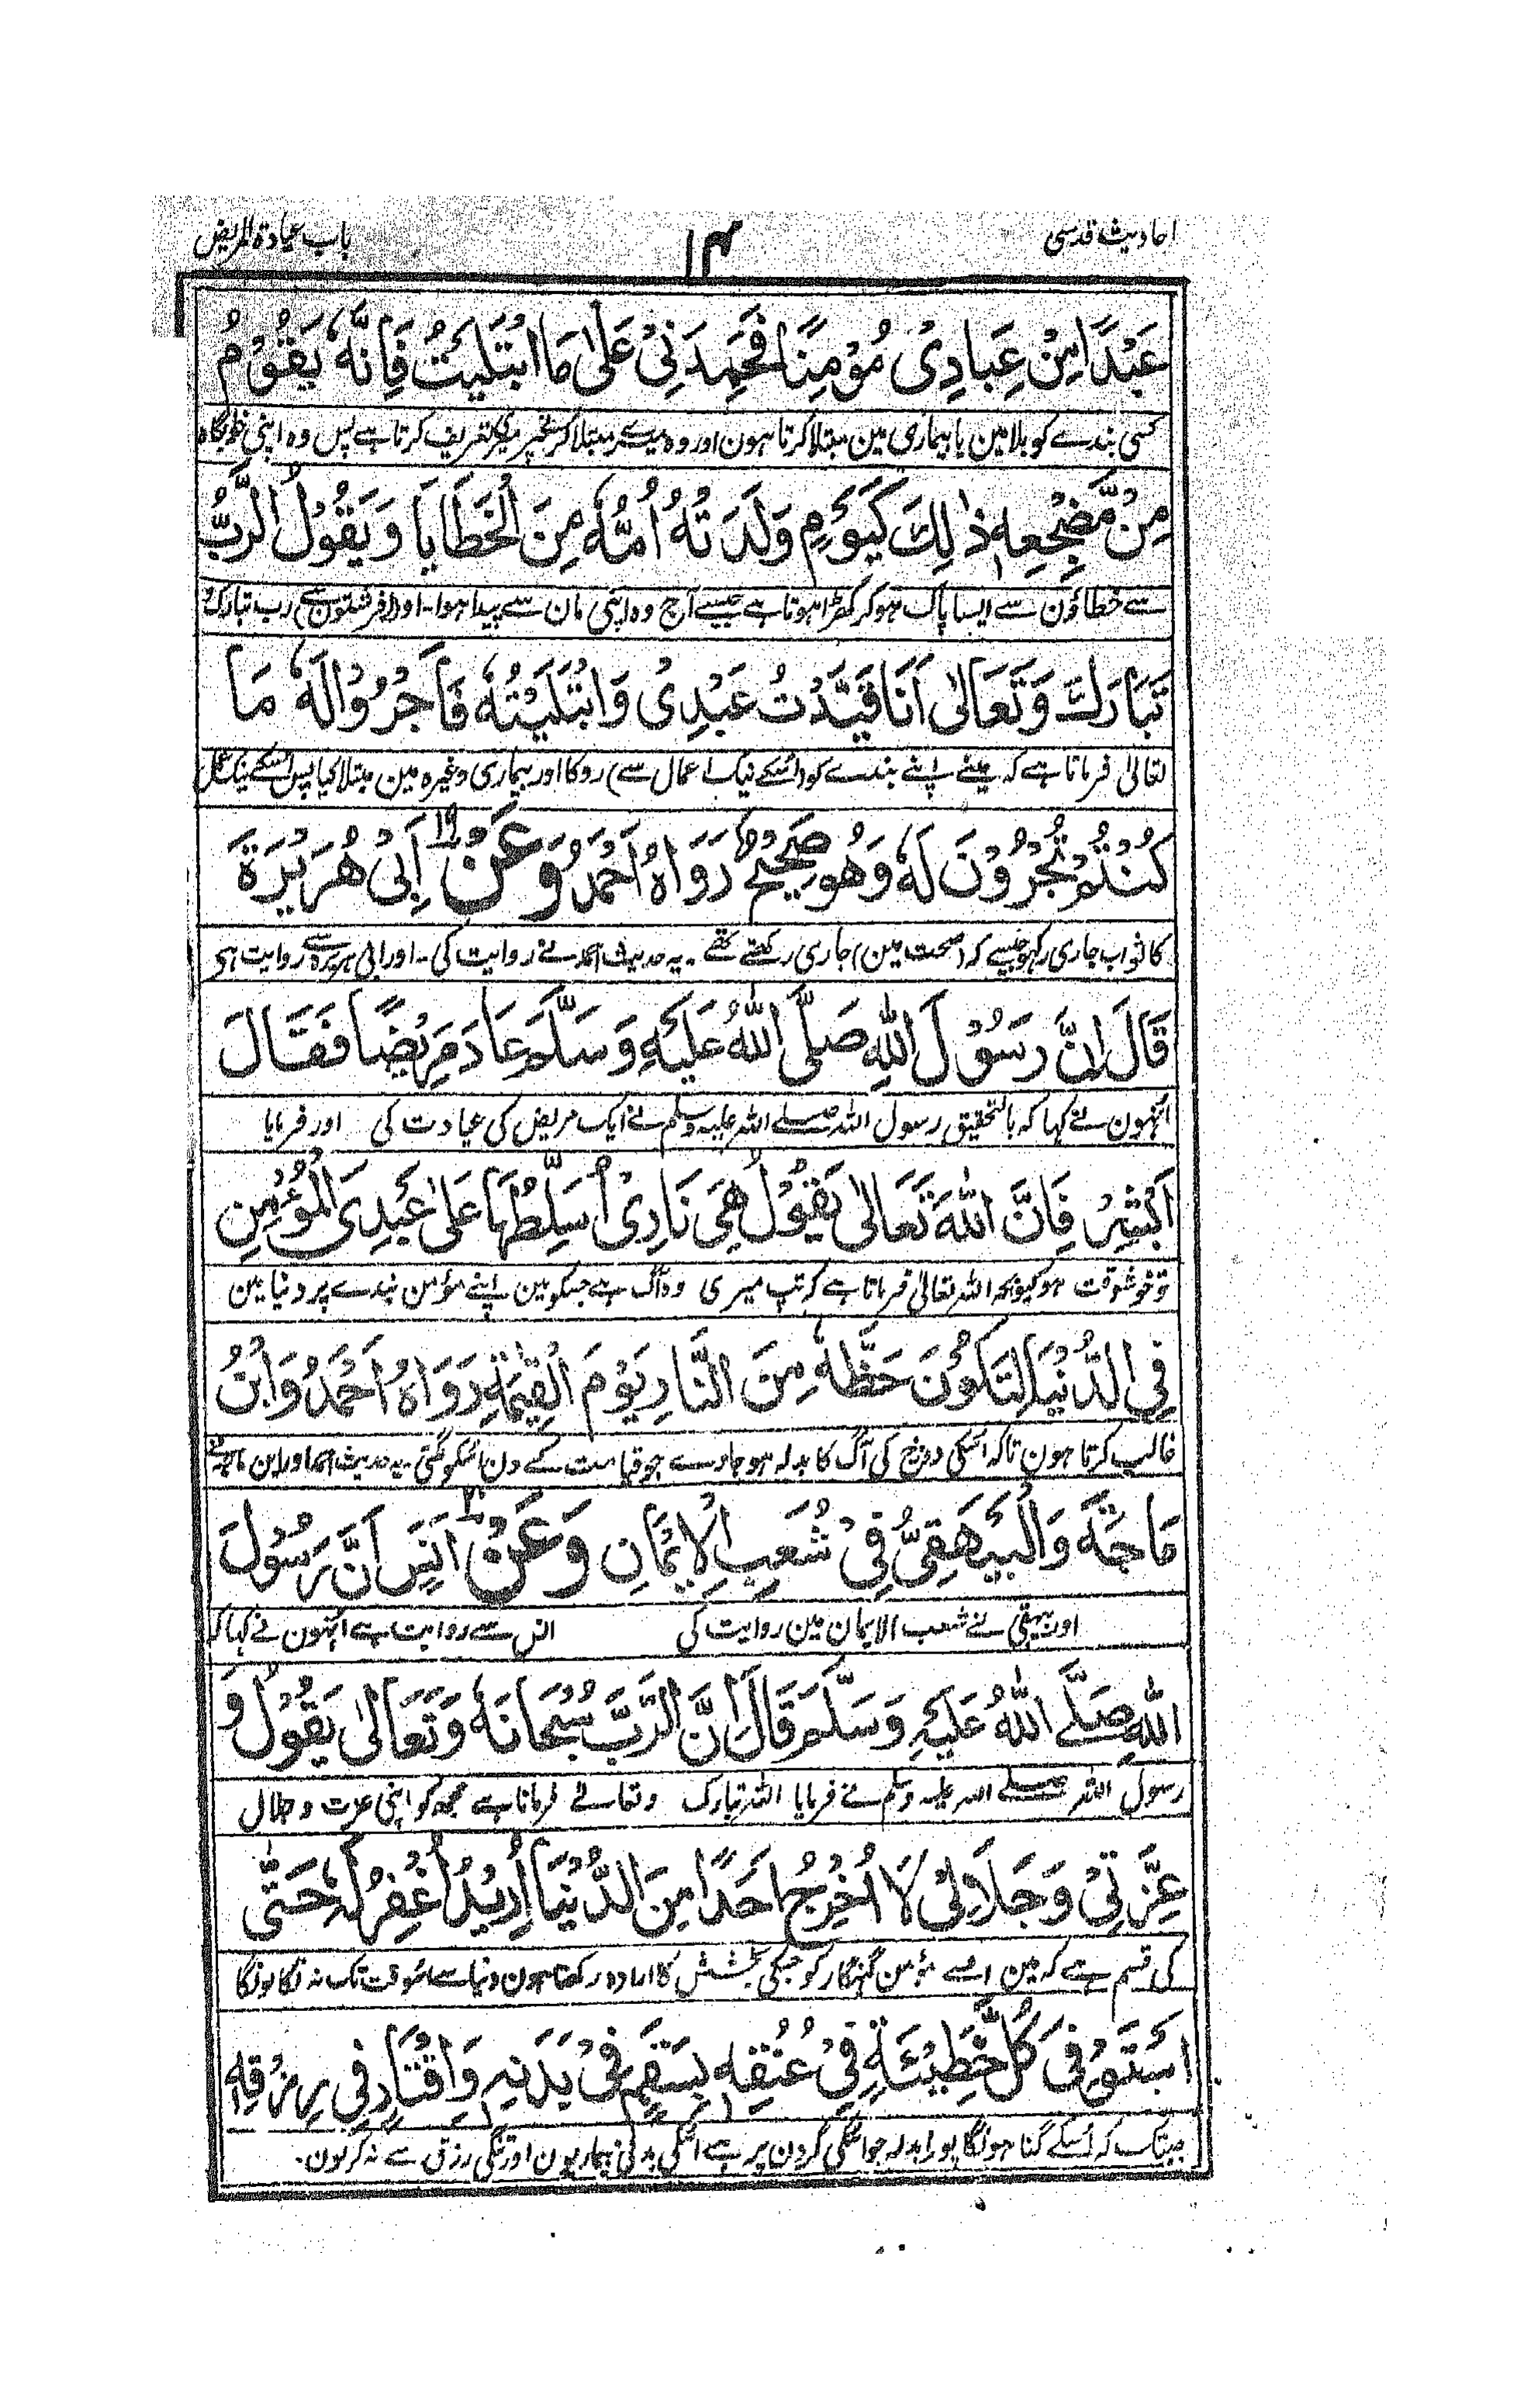 احادیث قدسی ۱۴ باب عیادۃ المریض
عَبْدًا مِنْ عِبَادِیْ مُؤْمِنًا فَحَمِدَنِیْ عَلٰی مَا ابْتَلَیْتُ فَاِنَّهٗ یَقُوْمُ
کسی بندے کو بلا مین یا بیماری مین مبتلا کرتا ہون اور وہ میرے مبتلا کرنیپر میری تعریف کرتا ہے پس وہ اپنی خوابگاہ
مِنْ مَّضْجَعِهٖ ذٰلِكَ کَیَوْمِ وَلَدَتْهُ اُمُّهٗ مِنَ الْخَطَایَا وَیَقُوْلُ الرَّبُّ
سے خطاؤن سے ایسا پاک ہو کر کھڑا ہوتا ہے جیسے آج وہ اپنی مان سے پیدا ہوا۔ اور (فرشتون سے) رب تبارک و
تَبَارَكَ وَتَعَالٰی اَنَا قَیَّدْتُ عَبْدِیْ وَابْتَلَیْتُهٗ فَاَجْرُوْا لَهٗ مَا
تعالیٰ فرماتا ہے کہ مینے اپنے بندے کو (اسکے نیک اعمال سے) روکا اور بیماری وغیرہ مین مبتلا کیا پس اسکے نیک عمل
کُنْتُمْ تُجْرُوْنَ لَهٗ وَهُوَ صَحِیْحٌ رَوَاهُ اَحْمَدُ وَعَنْ ۱۹ اَبِیْ هُرَیْرَةَ
کا ثواب جاری رکھو جیسے کہ (صحت مین) جاری رکھتے تھے۔ یہ حدیث احمد نے روایت کی۔ اور ابی ہریرہ سے روایت ہی
قَالَ اِنَّ رَسُوْلَ اللّٰهِ صَلَّی اللّٰهُ عَلَیْهِ وَسَلَّمَ عَادَ مَرِیْضًا فَقَالَ
انہون نے کہا کہ بالتحقیق رسول اللہ صلے اللہ علیہ وسلم نے ایک مریض کی عیادت کی اور فرمایا
اَبْشِرْ فَاِنَّ اللّٰهَ تَعَالٰی یَقُوْلُ هِیَ نَارِیْ اُسَلِّطُهَا عَلٰی عَبْدِیَ الْمُؤْمِنِ
تو خوشوقت ہو کیونکہ اللہ تعالیٰ فرماتا ہے کہ تپ میری وہ آگ ہے جسکو مین اپنے مؤمن بندے پر دنیا مین
فِی الدُّنْیَا لِتَکُوْنَ حَظَّهٗ مِنَ النَّارِ یَوْمَ الْقِیٰمَةِ رَوَاهُ اَحْمَدُ وَابْنُ
غالب کرتا ہون تاکہ اسکی دوزخ کی آگ کا بدلہ ہو جاوے جو قیامت کے دن اسکو لگتی۔ یہ حدیث احمد اور ابن ماجہ نے
مَاجَةَ وَالْبَیْهَقِیُّ فِیْ شُعَبِ الْاِیْمَانِ وَعَنْ ۲۰ اَنَسٍ اَنَّ رَسُوْلَ
اور بیہقی نے شعب الایمان مین روایت کی انس سے روایت ہے انہون نے کہا کہ
اللّٰهِ صَلَّے اللّٰهُ عَلَیْهِ وَسَلَّمَ قَالَ اِنَّ الرَّبَّ سُبْحَانَهٗ وَتَعَالٰی یَقُوْلُ وَ
رسول اللہ صلے اللہ علیہ وسلم نے فرمایا اللہ تبارک وتعالے فرماتا ہے مجھ کو اپنی عزت و جلال
عِزَّتِیْ وَجَلَالِیْ لَا اُخْرِجُ اَحَدًا مِنَ الدُّنْیَا اُرِیْدُ اَغْفِرُ لَهٗ حَتّٰی
کی قسم ہے کہ مین ایسے مؤمن گنہگار کو جسکی بخشش کا ارادہ رکھتا ہون دنیا سے اسوقت تک نہ نکالونگا
اَسْتَوْفِیَ کُلَّ خَطِیْئَةٍ فِیْ عُنُقِهٖ بِسَقَمٍ فِیْ بَدَنِهٖ وَاِقْتَارٍ فِیْ رِزْقِهٖ
جبتک کہ اسکے گناہونکا پورا بدلہ جو اسکی گردن پر ہے اسکی بدنی بیماریون اور تنگی رزق سے نہ کر لون۔